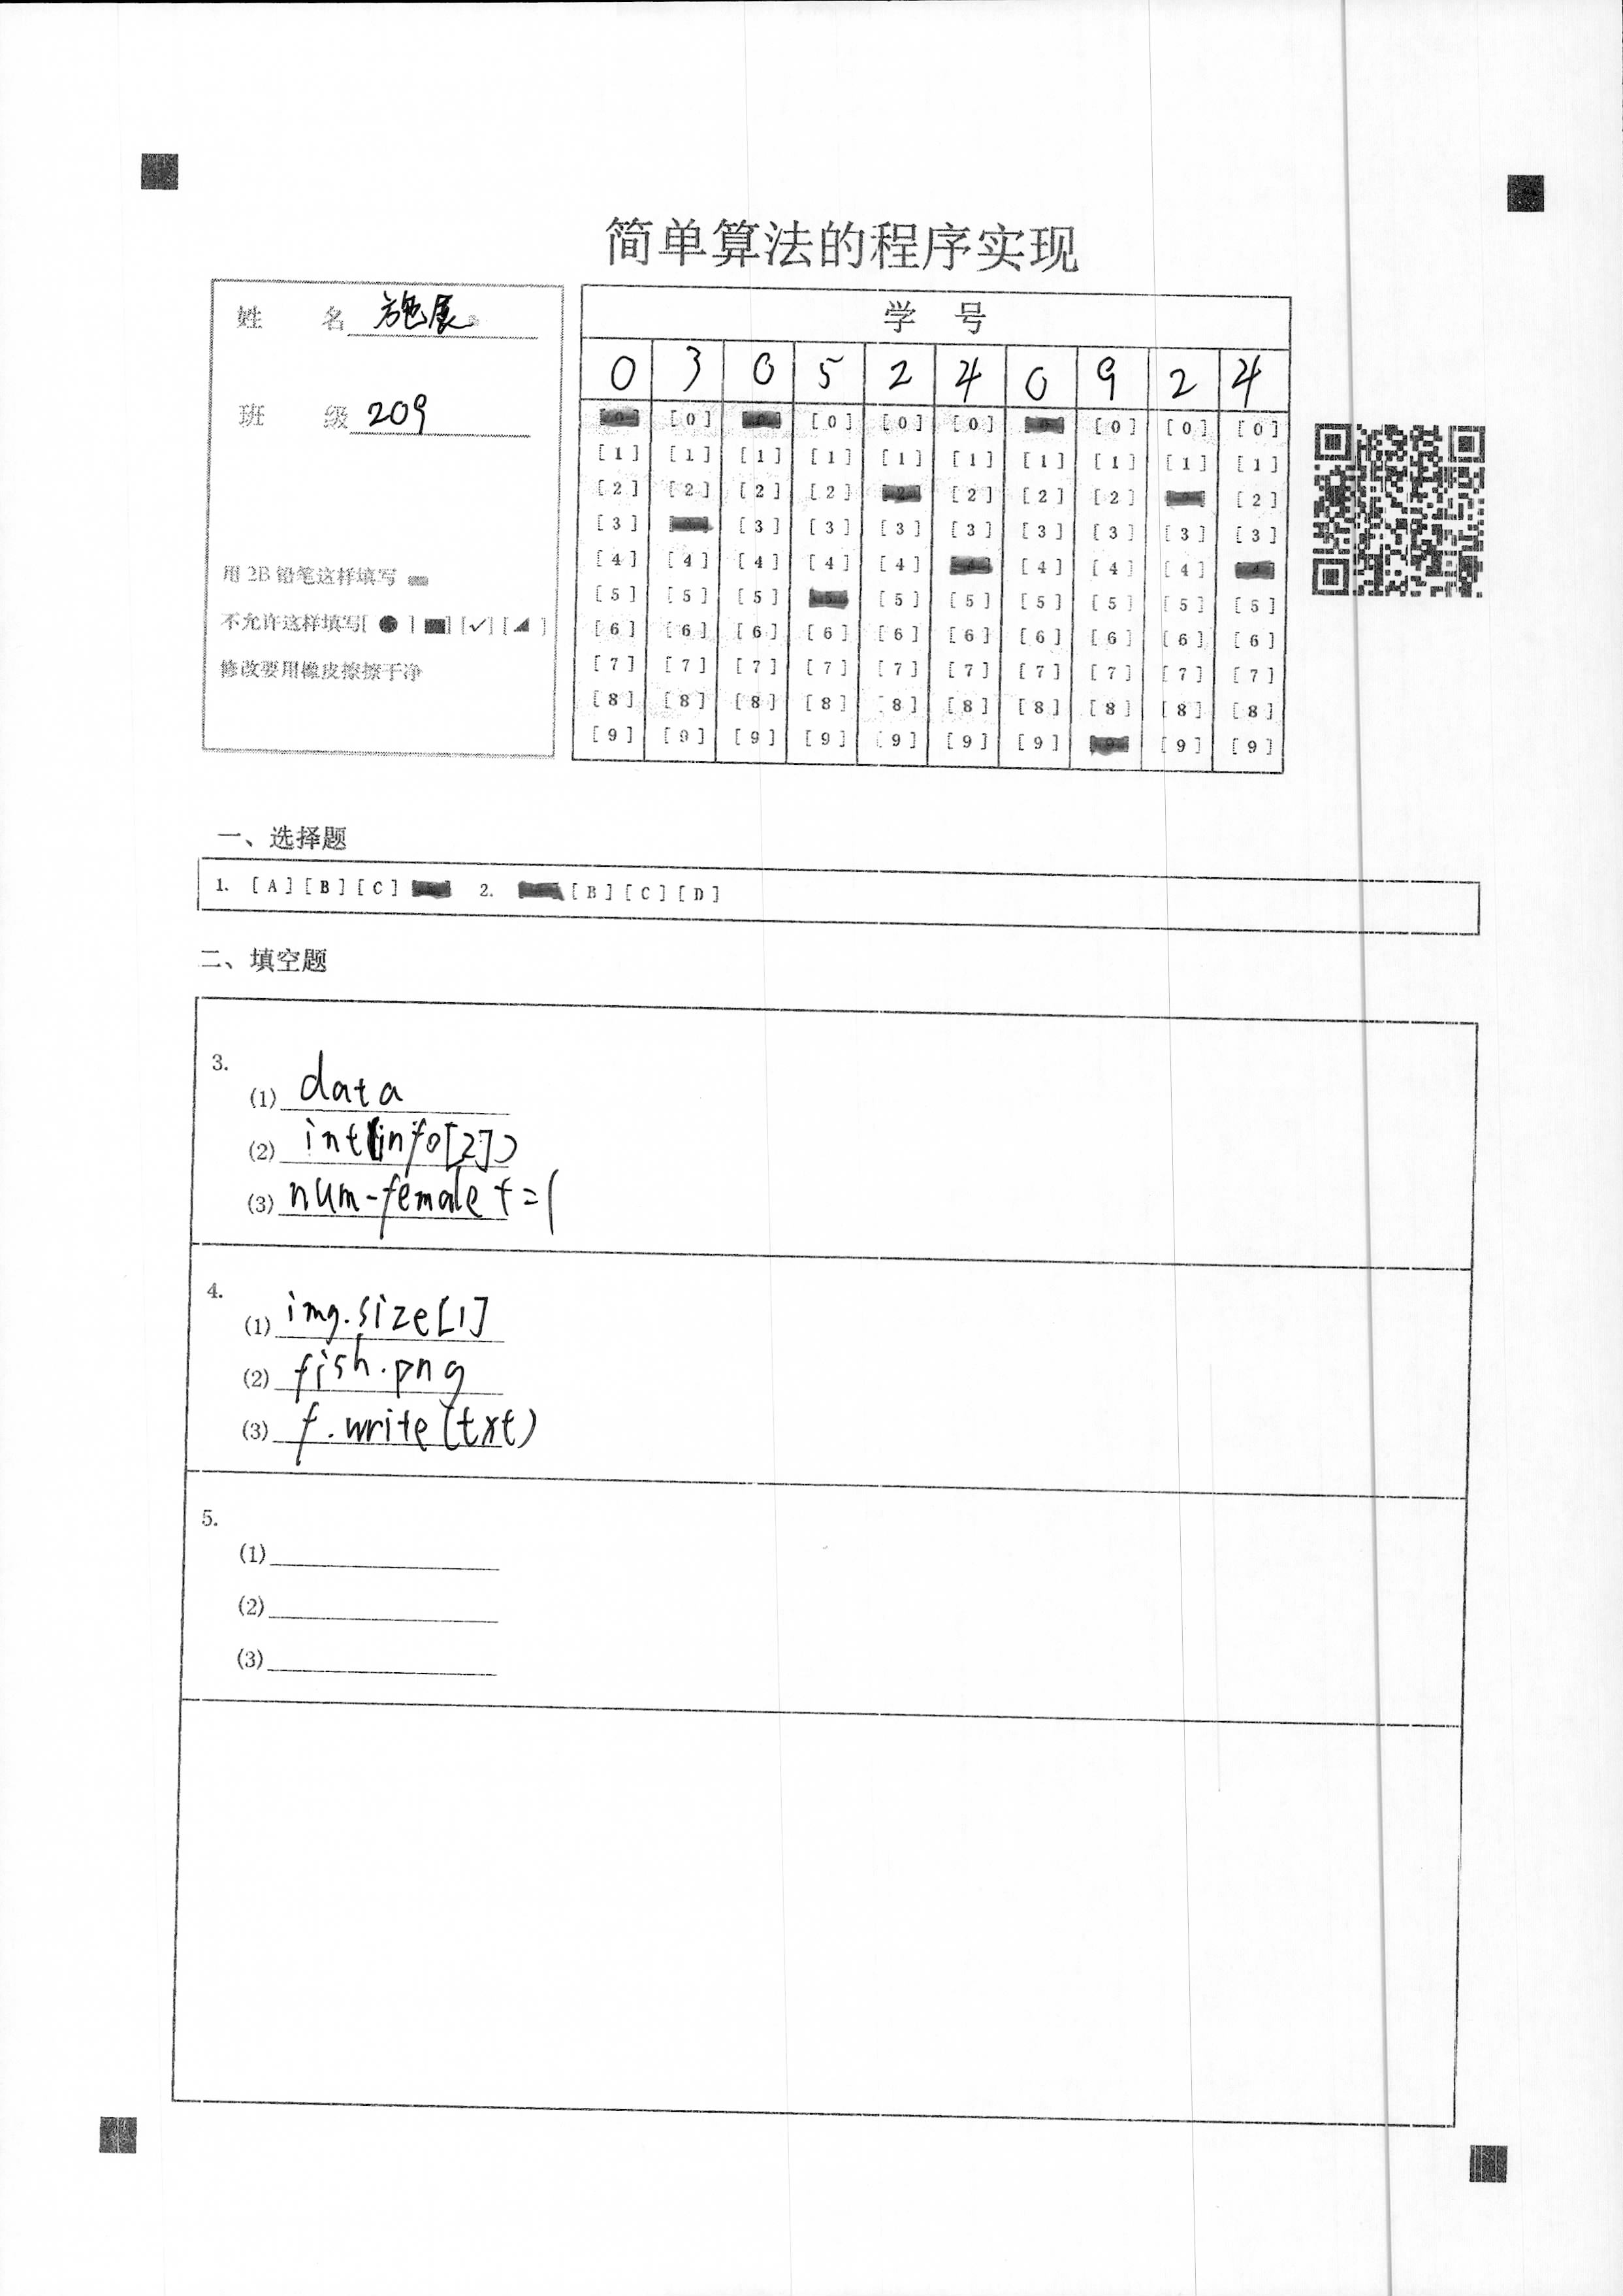 简单算法的程序实现
姓 名 施展
班 级 209
用 2B 铅笔这样填写
不允许这样填写[ ● ] [ ■ ] [ ✓ ] [ ◢ ]
修改要用橡皮擦擦干净
学 号
0 3 0 5 2 4 0 9 2 4
[0] [0] [0] [0] [0] [0] [0]
[1] [1] [1] [1] [1] [1] [1] [1] [1] [1]
[2] [2] [2] [2] [2] [2] [2] [2]
[3] [3] [3] [3] [3] [3] [3] [3] [3]
[4] [4] [4] [4] [4] [4] [4] [4]
[5] [5] [5] [5] [5] [5] [5] [5] [5]
[6] [6] [6] [6] [6] [6] [6] [6] [6] [6]
[7] [7] [7] [7] [7] [7] [7] [7] [7] [7]
[8] [8] [8] [8] [8] [8] [8] [8] [8] [8]
[9] [9] [9] [9] [9] [9] [9] [9] [9]
一、选择题
1. [A] [B] [C] 2. [B] [C] [D]
二、填空题
3.
(1) data
(2) int(info[2])
(3) num-female+=1
4.
(1) img.size[1]
(2) fish.png
(3) f.write(txt)
5.
(1)
(2)
(3)